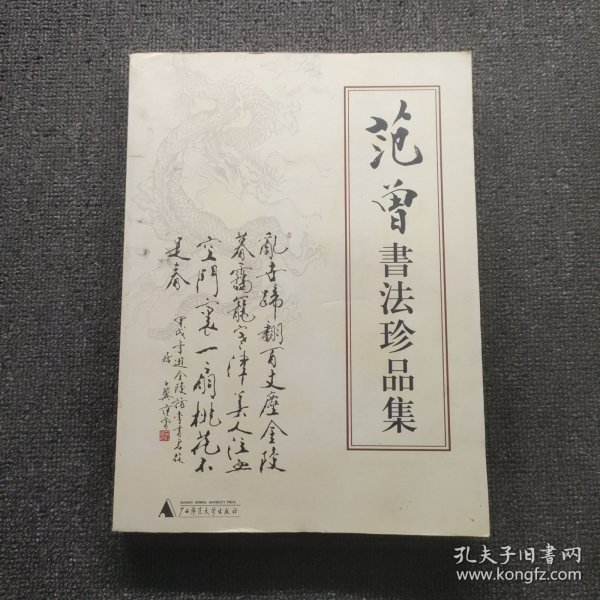 范曾書法珍品集
蹄翻百丈塵金陵
暮靄籠寒津美人泣血
空門裏一扇桃花不
是春
甲戌年遊金陵訪李香君故
居 十翼范曾
GUANGXI NORMAL UNIVERSITY PRESS
广西师范大学出版社
孔夫子旧书网
www.kongfz.com